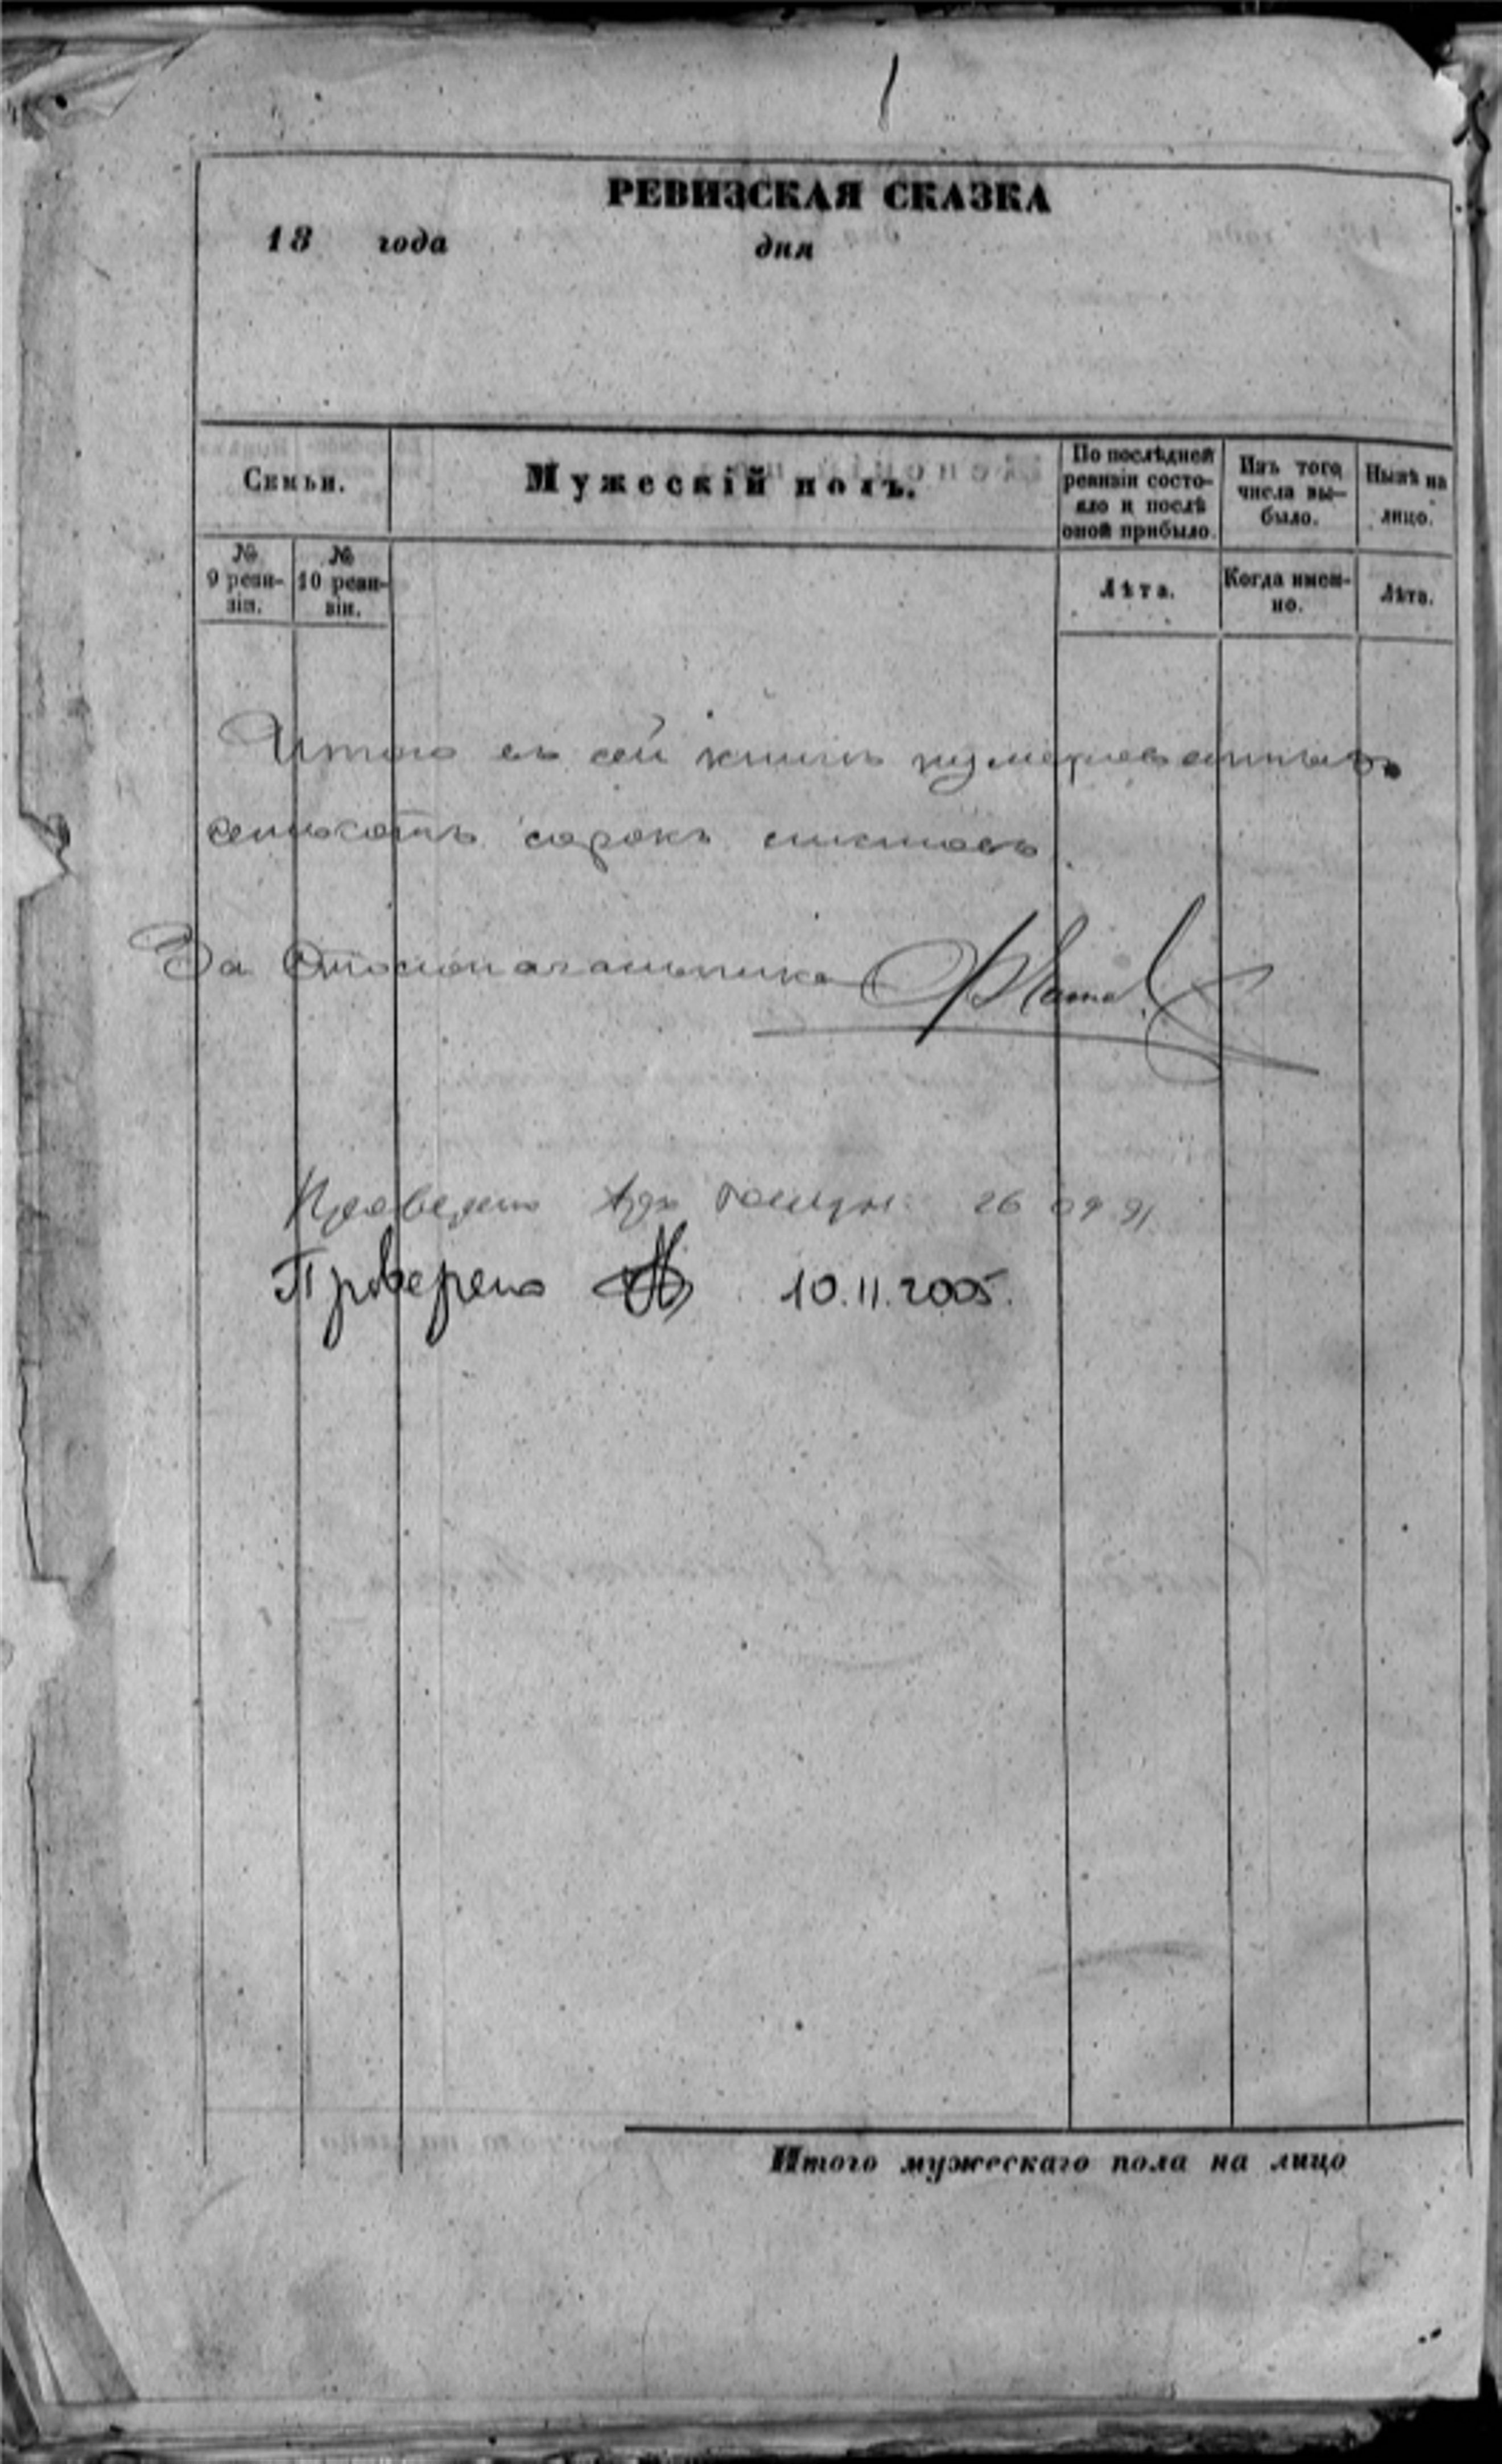 РЕВИЗСКАЯ СКАЗКА
18 года дня
Семьи.
Мужескій полъ.
По послѣдней
ревизіи состо-
яло и послѣ
оной прибыло.
Изъ того
числа вы-
было.
Нынѣ на
лицо.
№
9 реви-
зіи.
№
10 реви-
зіи.
Лѣта.
Когда имен-
но.
Лѣта.
Итого въ сей книгѣ нумерованныхъ
семьсотъ сорокъ листовъ.
За Столоначальника
Проверено 26 09 91
Проверено 10.11.2005.
Итого мужескаго пола на лицо